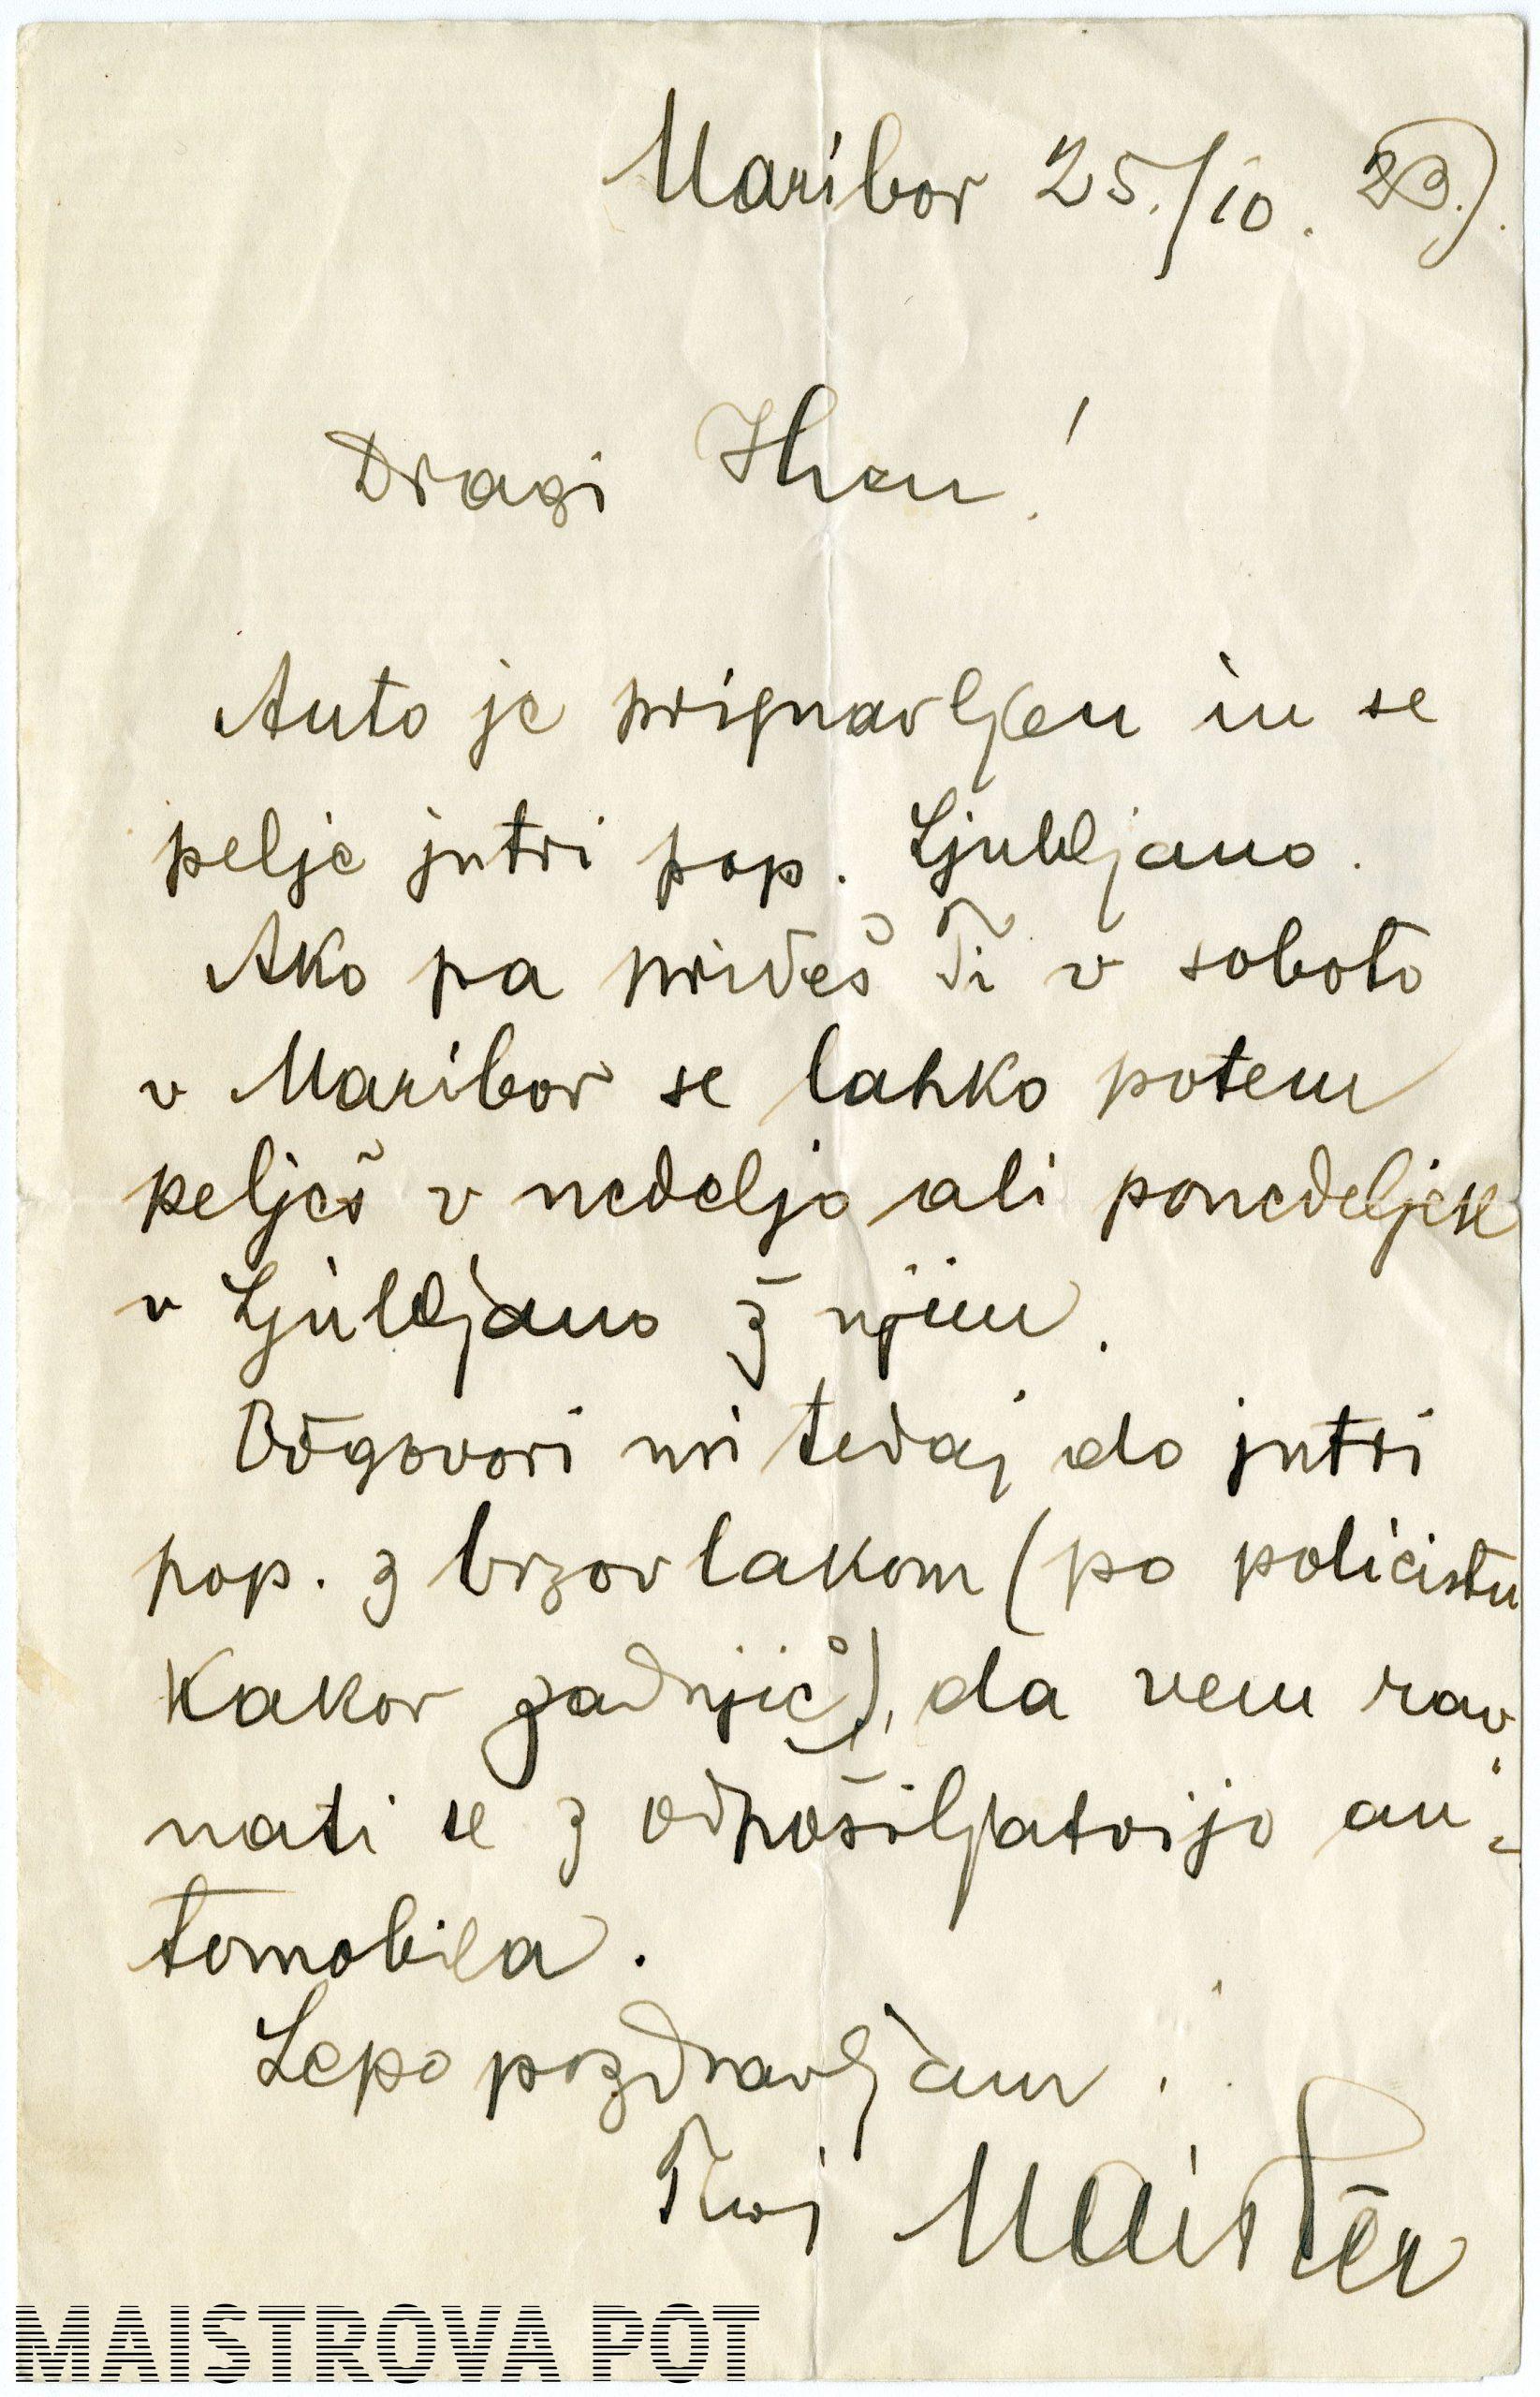 Maribor 25./10. 23.).
Dragi !
Auto je pripravljen in se
pelje jutri pop. Ljubljano.
Ako pa prideš Ti v soboto
v Maribor se lahko potem
pelješ v nedeljo ali ponedeljek
v Ljubljano ž njim.
Odgovori mi tedaj do jutri
pop. z brzovlakom (po policistu
kakor zadnjič), da vem rav
nati se z odpošiljatvijo au-
tomobila.
Lepo pozdravljam
Tvoj Maister
MAISTROVA POT